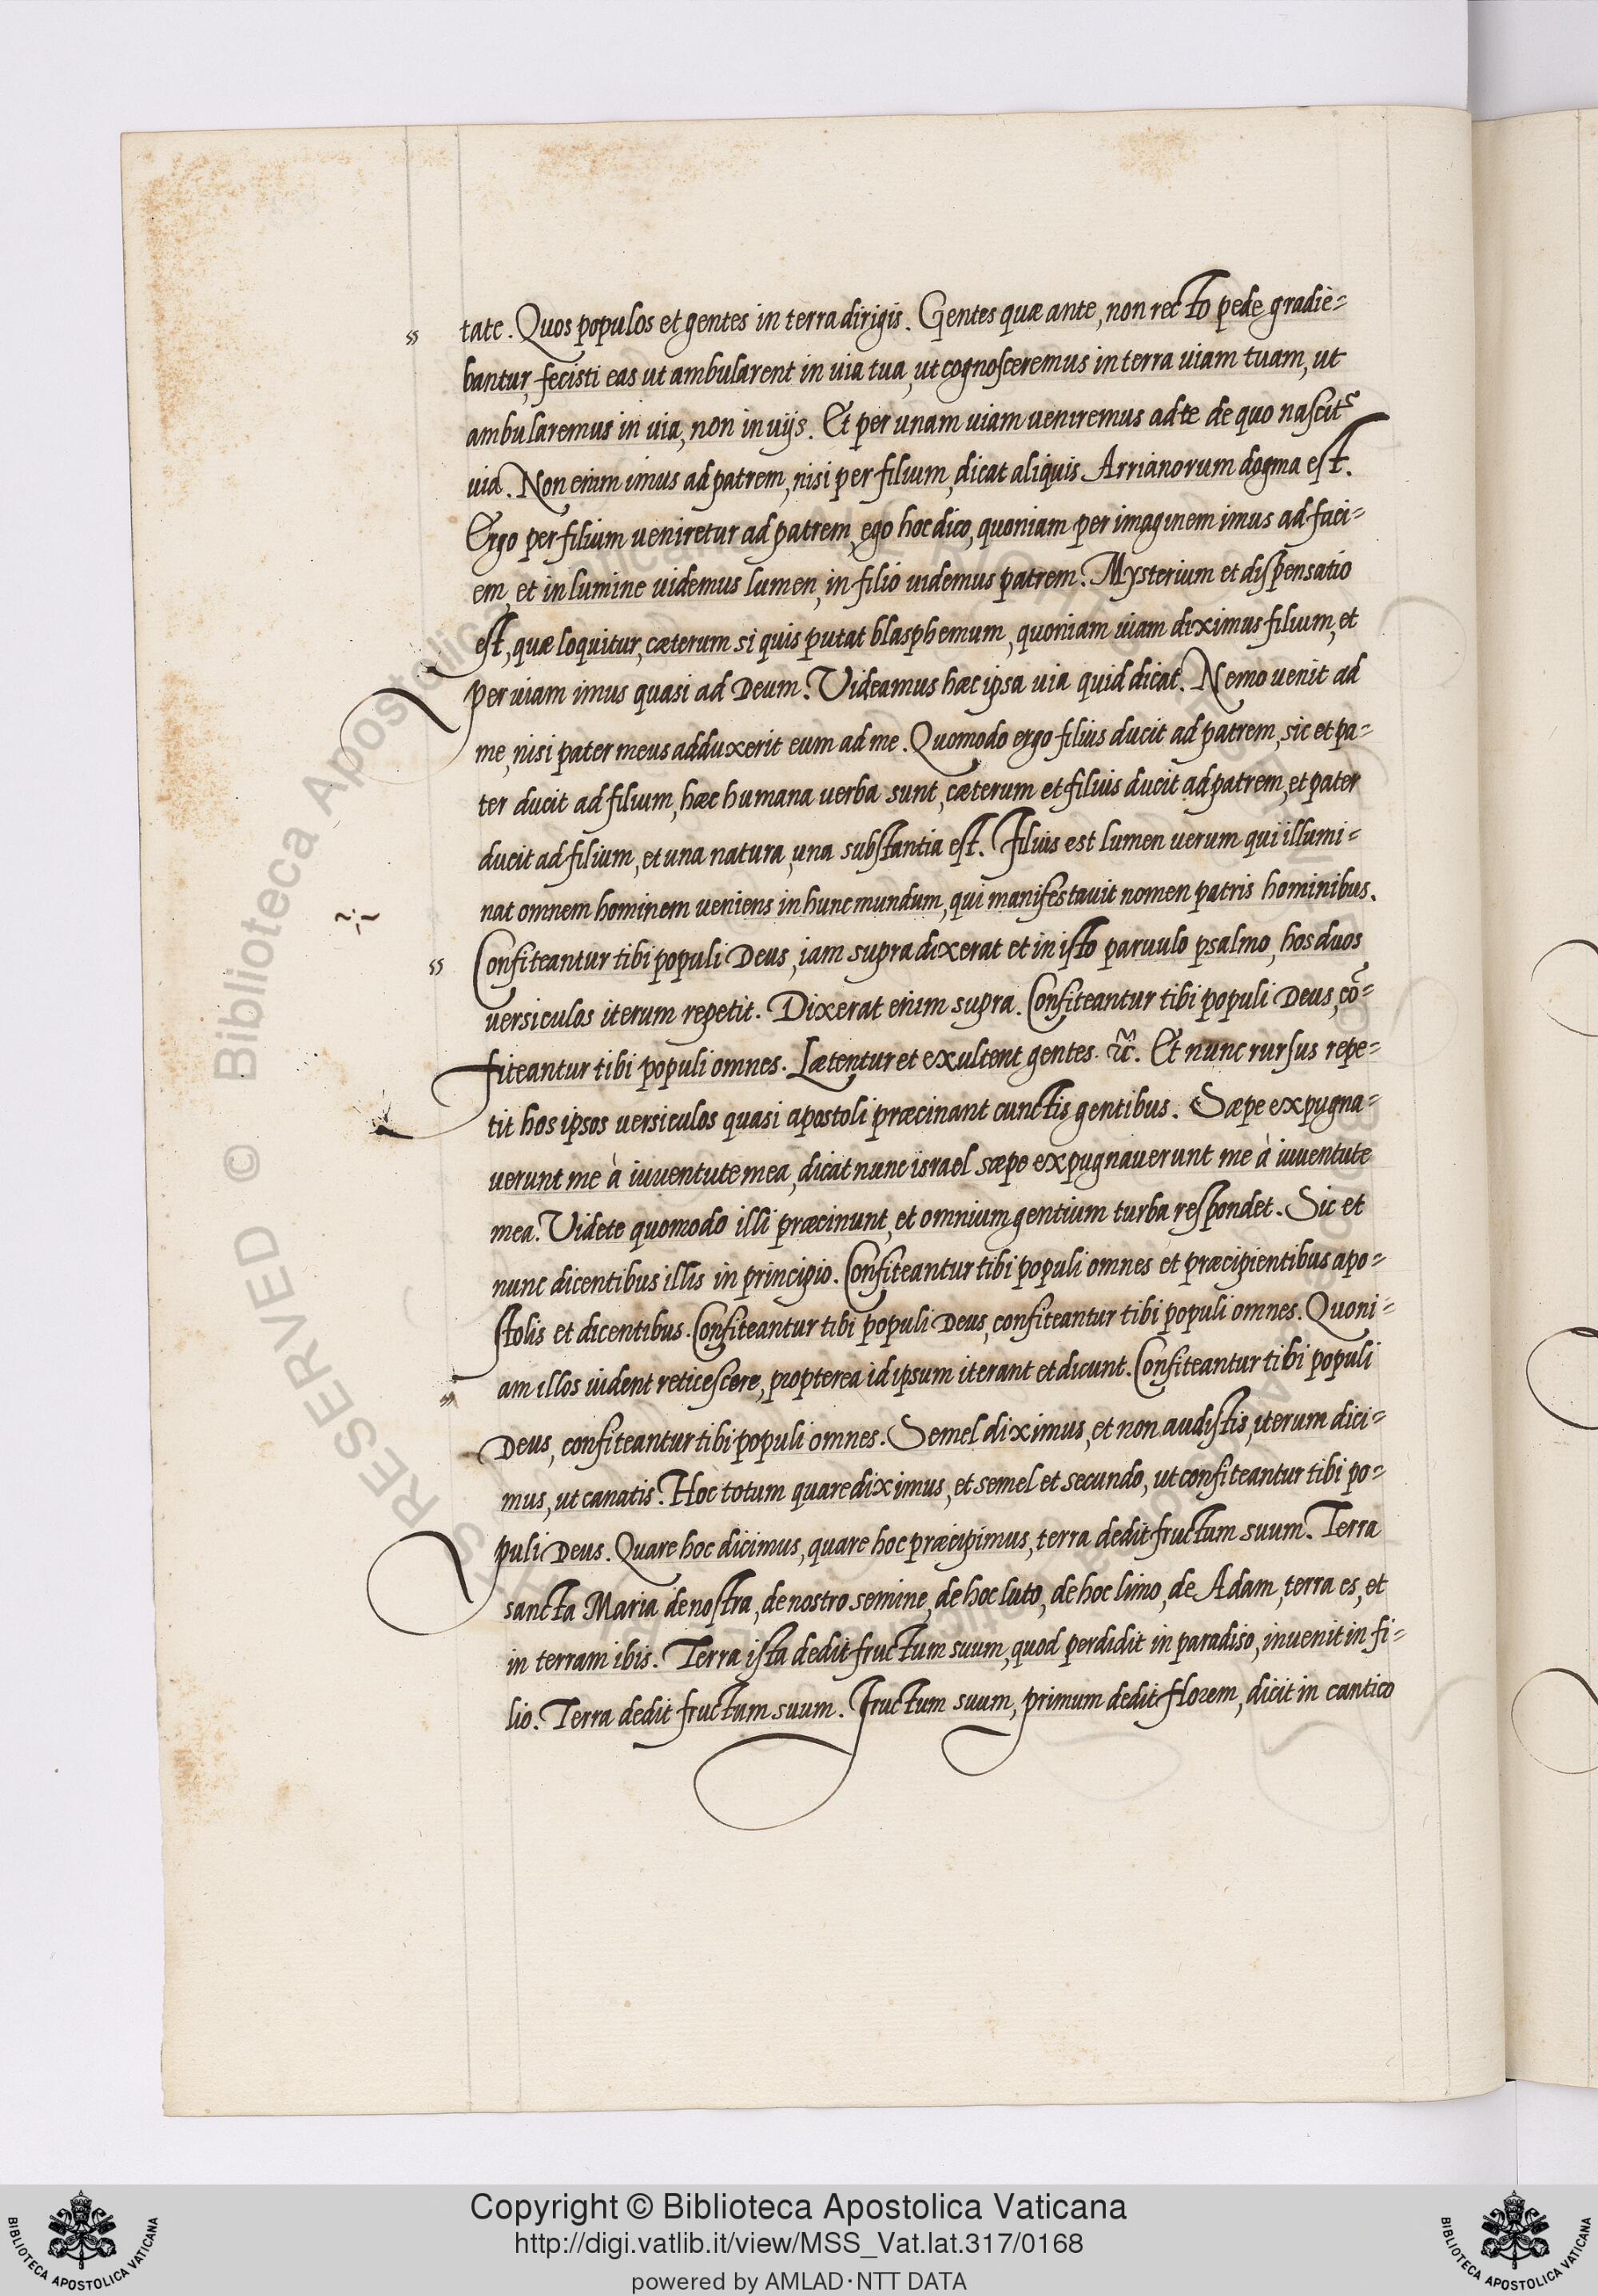 tate. Quos populos et gentes in terra dirigis. Gentes quæ ante, non recto pede gradie=
bantur, fecisti eas ut ambularent in uia tua, ut cognosceremus in terra uiam tuam, ut
ambularemus in uia, non in uijs. Et per unam uiam ueniremus ad te de quo nascit᷑
uia. Non enim imus ad patrem, nisi per filium, dicat aliquis Arrianorum dogma est.
Ergo per filium ueniretur ad patrem, ego hoc dico, quoniam per imaginem imus ad faci=
em, et in lumine uidemus lumen, in filio uidemus patrem. Mysterium et dispensatio
est, quæ loquitur, cæterum si quis putat blasphemum, quoniam uiam diximus filium, et
per uiam imus quasi ad Deum. Videamus hæc ipsa uia quid dicat. Nemo venit ad
me, nisi pater meus adduxerit eum ad me. Quomodo ergo filius ducit ad patrem, sic et pa=
ter ducit ad filium, hæc humana uerba sunt, cæterum et filius ducit ad patrem, et pater
ducit ad filium, et una natura, una substantia est. Filius est lumen uerum qui illumi=
nat omnem hominem ueniens in hunc mundum, qui manifestauit nomen patris hominibus.
Confiteantur tibi populi Deus, iam supra dixerat et in isto paruulo psalmo, hos duos
uersiculos iterum repetit. Dixerat enim supra. Confiteantur tibi populi Deus, cō=
fiteantur tibi populi omnes. Lætentur et exultent gentes. &c̃. Et nunc rursus repe=
tit hos ipsos uersiculos quasi apostoli præcinant cunctis gentibus. Sæpe expugna=
uerunt me à iuuentute mea, dicat nunc israel sæpe expugnauerunt me à iuuentute
mea. Videte quomodo illi præcinunt, et omnium gentium turba respondet. Sic et
nunc dicentibus illis in principio. Confiteantur tibi populi omnes et præcipientibus apo=
stolis et dicentibus. Confiteantur tibi populi Deus, confiteantur tibi populi omnes. Quoni=
am illos uident reticescere, propterea id ipsum iterant et dicunt. Confiteantur tibi populi
Deus, confiteantur tibi populi omnes. Semel diximus, et non audistis, iterum dici=
mus, ut canatis. Hoc totum quare diximus, et semel et secundo, ut confiteantur tibi po=
puli Deus. Quare hoc dicimus, quare hoc præcipimus, terra dedit fructum suum. Terra
sancta Maria de nostra, de nostro semine, de hoc luto, de hoc limo, de Adam, terra es, et
in terram ibis. Terra ista dedit fructum suum, quod perdidit in paradiso, inuenit in fi=
lio. Terra dedit fructum suum. Fructum suum, primum dedit florem, dicit in cantico
Copyright © Biblioteca Apostolica Vaticana
http://digi.vatlib.it/view/MSS_Vat.lat.317/0168
powered by AMLAD·NTT DATA
BIBLIOTECA APOSTOLICA VATICANA
BIBLIOTECA APOSTOLICA VATICANA